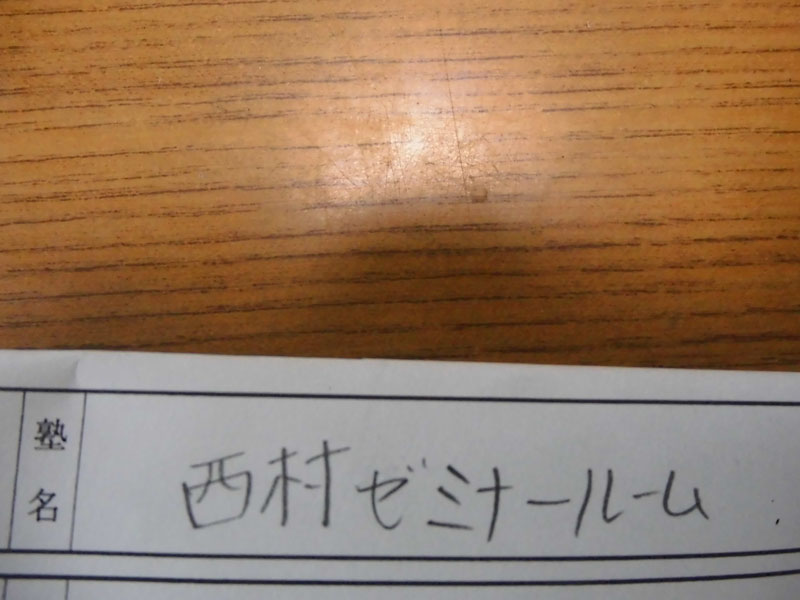 塾名
西村ゼミナールーム